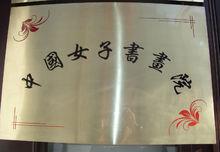 中國女子書畫院